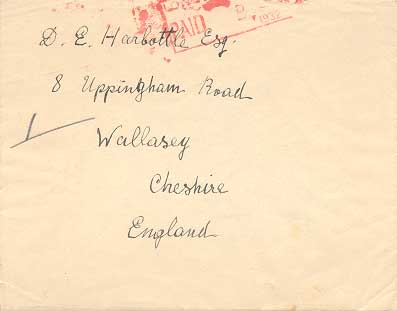 PAID
1932
D. E. Harbottle Esq.
8 Uppingham Road
Wallasey
Cheshire
England